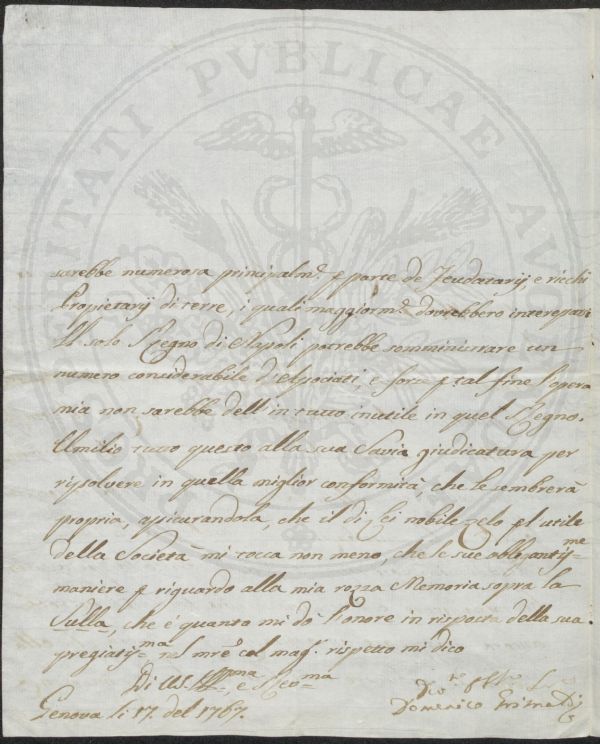 PROSPERITATI PVBLICAE AVGENDAE
sarebbe numerosa principalm.e p parte de Feudatarij, e ricchi
Propietarij di terre, i quali maggiorm.e dovrebbero interessarsi
Il solo Regno di Napoli potrebbe somministrare un
numero considerabile d'Associati, e forse p tal fine l'opera
mia non sarebbe dell'in tutto inutile in quel Regno.
Umilio tutto questo alla sua Savia giudicatura per
risolvere in quella miglior conformità, che le sembrerà
propria, assicurandola, che il di Lei nobile zelo pl utile
della Società mi tocca non meno, che le sue obligantiss=me
maniere p riguardo alla mia rozza Memoria sopra la
Sulla, che è quanto mi dò l'onore in risposta della sua
pregiatiss=ma nel mre col magr. rispetto mi dico
Di VS. Ill=ma, e Rev=ma
Genova li 17. del 1767.
Domenico Grimaldi